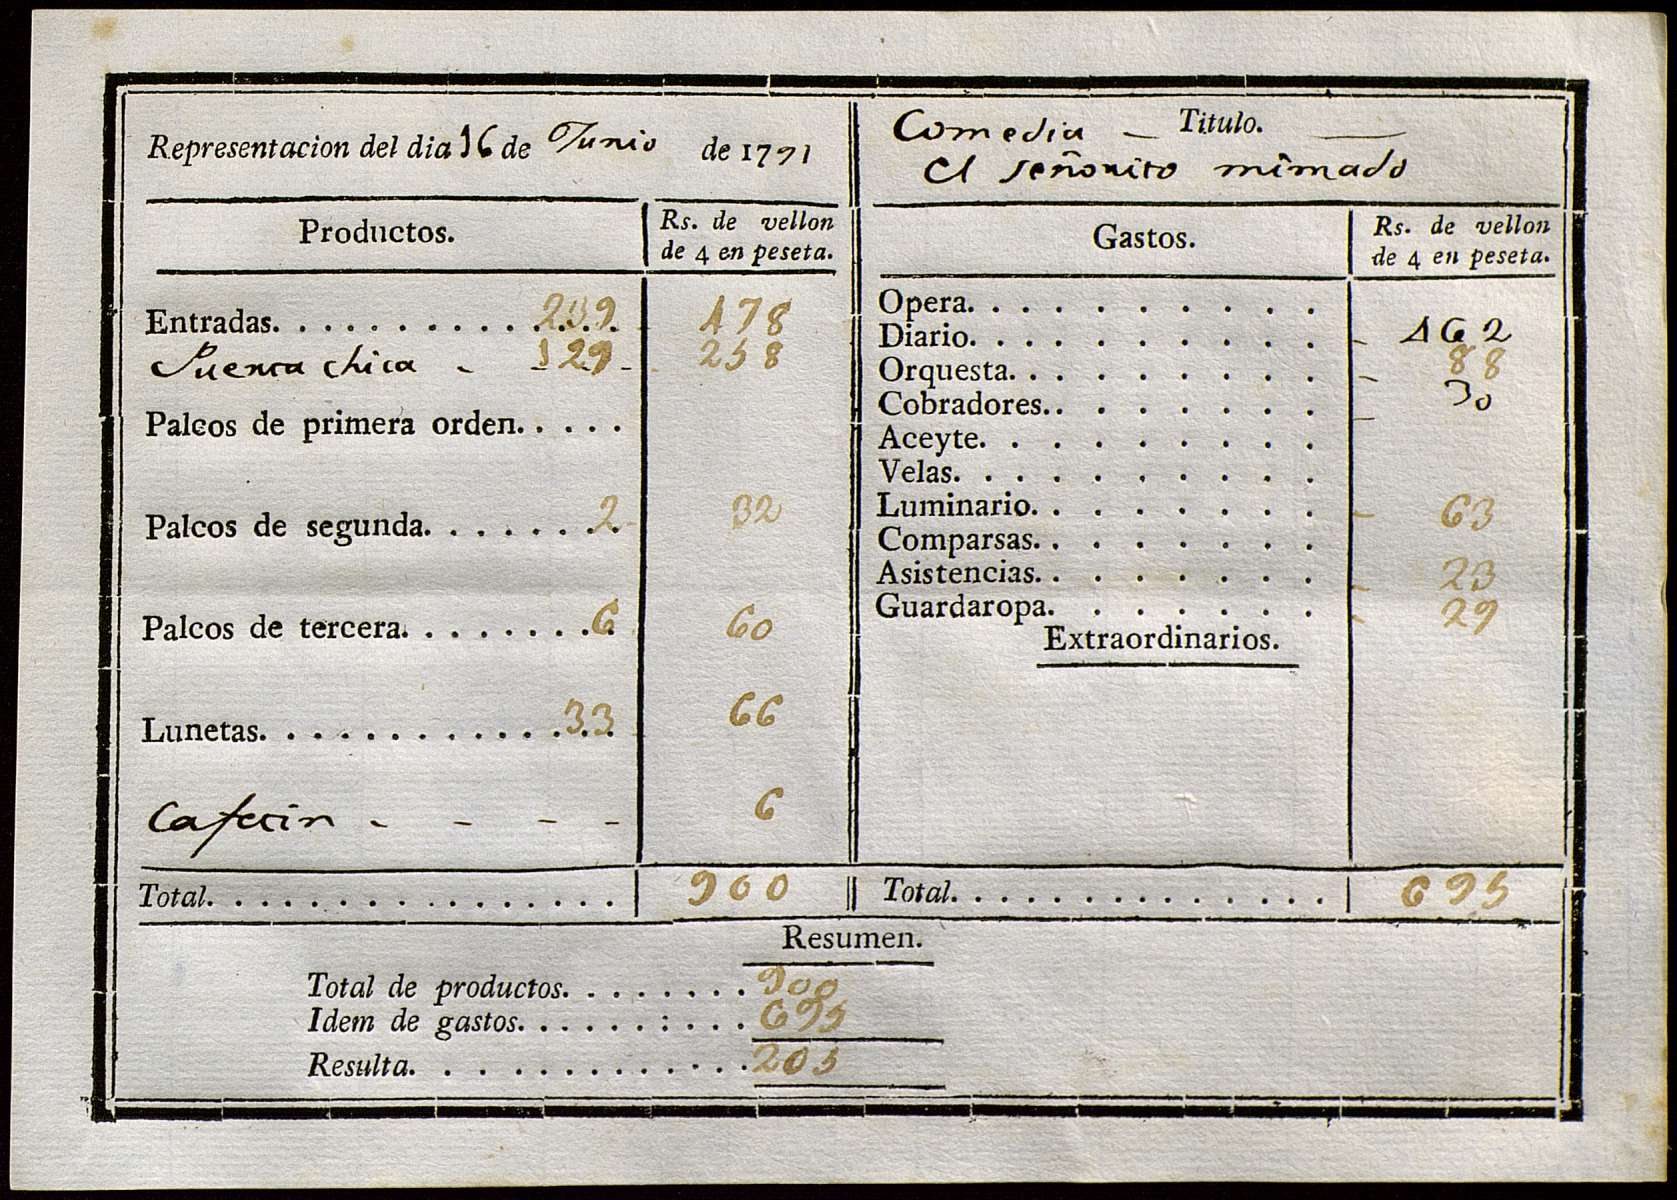 Representacion del dia 16 de Junio de 1791
Productos.
Rs. de vellon
de 4 en peseta.
Entradas. . . . . . . . . . . . . 239 478
Puerta chica - 129 - 258
Palcos de primera orden. . . . .
Palcos de segunda. . . . . . . 2 32
Palcos de tercera. . . . . . . . 6 60
Lunetas. . . . . . . . . . . . . 33 66
Cafetin - - - - 6
Total. . . . . . . . . . . . . . . . 900
Comedia — Titulo. —
El señorito mimado
Gastos.
Rs. de vellon
de 4 en peseta.
Opera. . . . . . . . .
Diario. . . . . . . . . - 462
Orquesta. . . . . . . . - 88
Cobradores. . . . . . . . - 30
Aceyte. . . . . . . . .
Velas. . . . . . . . . .
Luminario. . . . . . . . - 63
Comparsas. . . . . . . .
Asistencias. . . . . . . . - 23
Guardaropa. . . . . . . - 29
Extraordinarios.
Total. . . . . . . . . . . . . . . 695
Resumen.
Total de productos. . . . . . . . 900
Idem de gastos. . . . . . : . . . . 695
Resulta. . . . . . . . . . . . 205